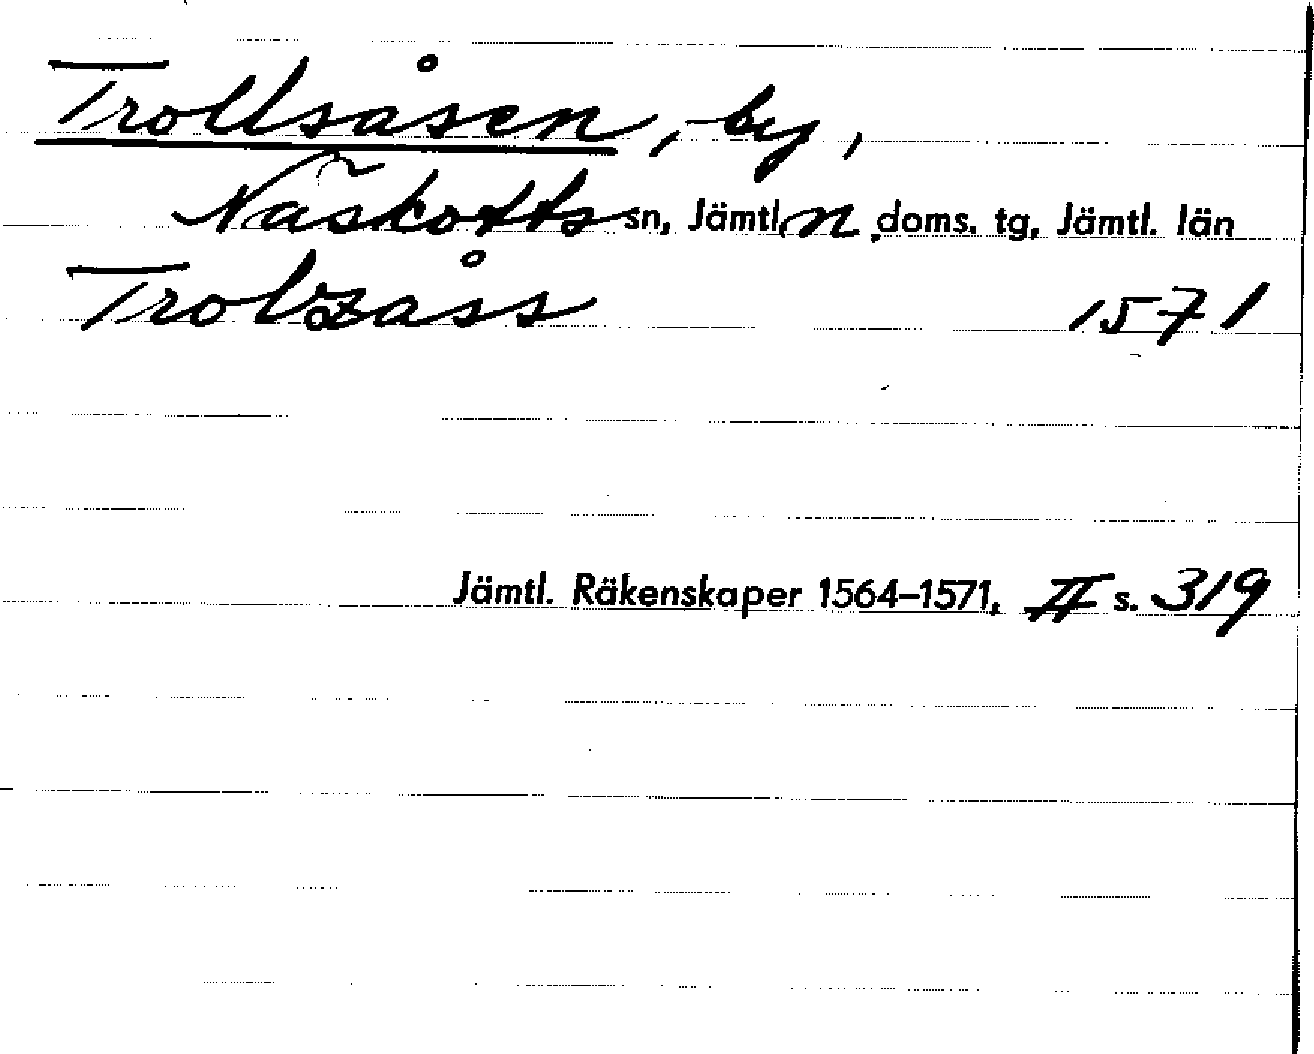 Trollsåsen, by,
Näskotts sn, Jämtl. n doms. tg, Jämtl. län
Trolzåss 1571
Jämtl. Räkenskaper 1564–1571, II s. 319